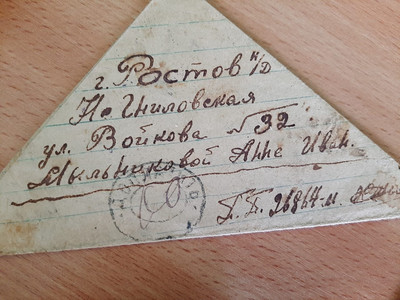 г. Ростов н/Д
Но Гниловская
ул. Войкова № 32
Мыльниковой Анне Иван.
П.П. 26864-м.